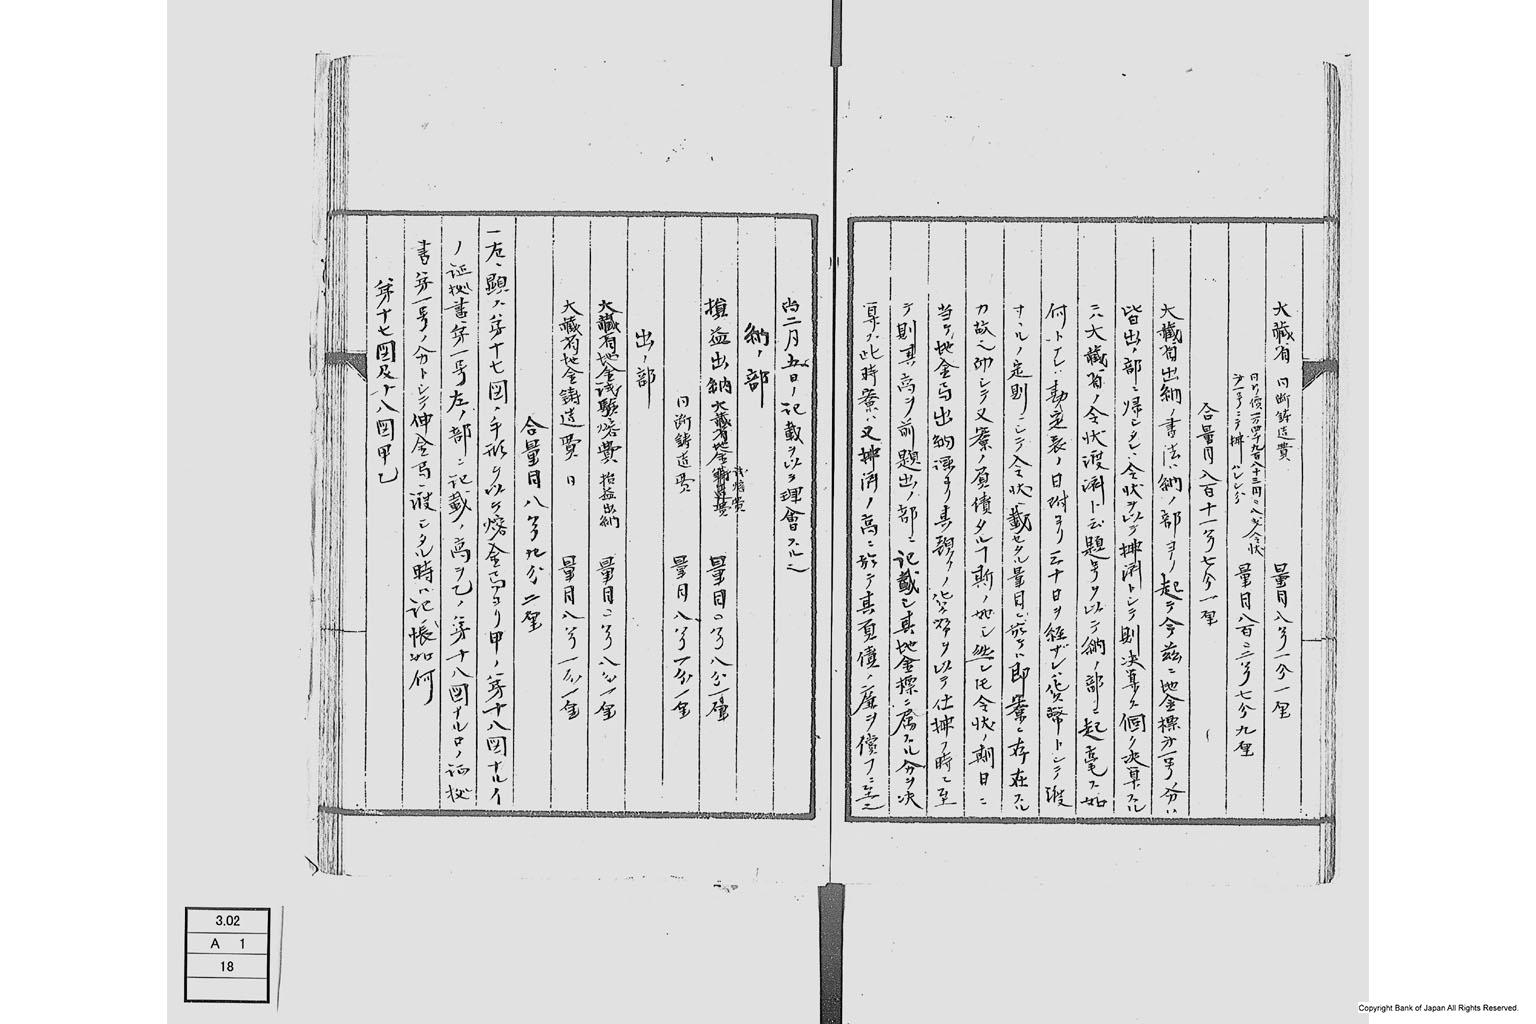 大蔵省 同断鋳造費 量目八匁一分一厘
量目八百〇三匁七分九厘
合量目八百十一匁七分一厘
大蔵省出納ノ書法ハ納ノ部ヨリ起テ今茲ニ地金標第一号ノ分ハ
皆出ノ部ニ帰シタレハ令状ヲ以テ払済トシテ則決算ス個ノ決算スル
ニハ大蔵省ノ令状渡済ト云題号ヲ以テ納ノ部ニ起毫ス如
何トナレハ勘定表ノ日附ヨリ三十日ヲ経ザレハ貨幣トシテ渡
サヽルノ定則ニシテ令状ニ載セタル量目ニ於テハ即寮ニ存在スル
カ故ニ而シテ又寮ノ負債タルヿ斯ノ如シ然レ𪜈令状ノ期日ニ
当リ地金局出納課ヨリ其額ノ貨幣ヲ以テ仕払フ時ニ至
テ則其高ヲ前題出ノ部ニ記載シ其地金標ニ属スル分ヲ決
算ス此時寮ハ又払済ノ高ニ於テ其負債ノ廉ヲ償フニ至ル
尚二月五日ノ記載ヲ以テ理會スルニ
納ノ部
損益出納 大蔵省地金試験費 量目〇匁八分一厘
同断鋳造費 量目八匁一分一厘
出ノ部
大蔵省地金試験熔費 損益出納 量目〇匁八分一厘
大蔵省地金鋳造費 同 量目八匁一分一厘
合量目八匁九分二厘
一右ニ顕ス第十七図ノ手形ヲ以テ熔金局ヨリ甲ノ第十八図ナルイ
ノ証拠書第一号左ノ部ニ記載ノ高ヲ乙ノ第十八図ナルロノ証拠
書第一号ノ分トシテ伸金局ニ渡シタル時ハ記帳如何
第十七図及十八図甲乙
3.02
A 1
18
Copyright Bank of Japan All Rights Reserved.